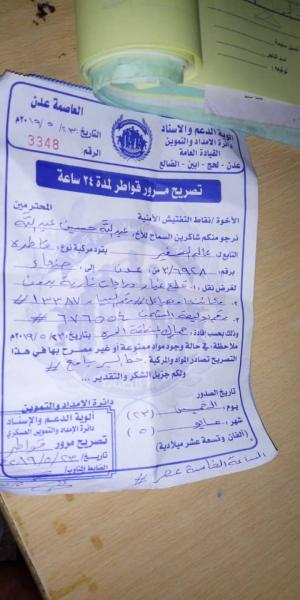 العاصمة عدن
ألوية الدعم والإسناد
دائرة الامداد والتموين
القيادة العامة
عدن - لحج - ابين - الضالع
التاريخ: ٢٣ / ٥ / ٢٠١٩م
الرقم 3348
تصريح مرور قواطر لمدة ٢٤ ساعة
الأخوة / نقاط التفتيش الأمنية المحترمين
نرجو منكم شاكرين السماح للأخ/ عبدالله حسين عبدالله
التابع/ يقود مركبة نوع/ قاطرة
برقم ٣/٦٩٢٨ من عدن إلى: صنعاء
لغرض نقل ١- قطع غيار دراجات نارية بدون
#١٣٣٨٧
#٦٧٦٥٥٤
وذلك بحسب إفادة: بتاريخ: ٢٣ / ٥ / ٢٠١٩م
ملاحظة: في حالة وجود مواد ممنوعة أو غير مصرح بها في هذا
التصريح تصادر المواد والمركبة.
ولكم جزيل الشكر والتقدير...
تاريخ الصدور
يوم: الخميس (٢٣)
شهر: مايو (٥)
(ألفان وتسعة عشر ميلادية)
الساعة الخامسة عصر #
دائرة الإمداد والتموين
ألوية الدعم والإسناد
دائرة الإمداد والتموين العسكري
تصريح مرور قواطر
تاريخ: ٢٣ / ٥ / ٢٠١٩م
الضابط المناوب/